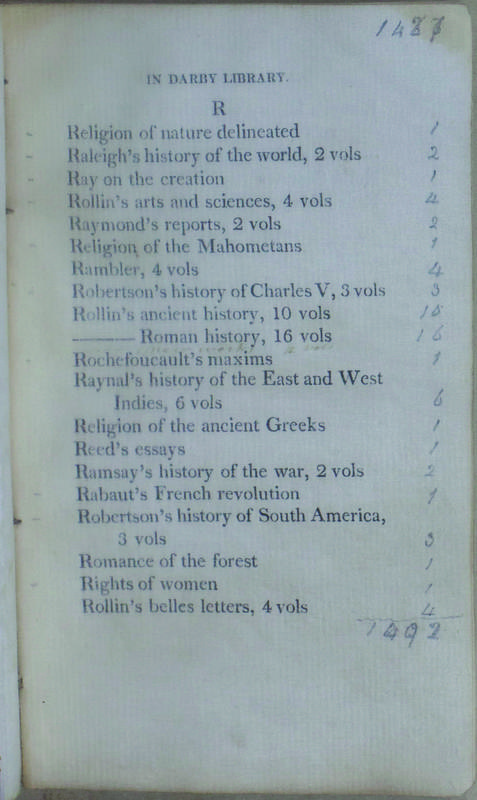 IN DARBY LIBRARY.
R
Religion of nature delineated 1
Raleigh's history of the world, 2 vols 2
Ray on the creation 1
Rollin's arts and sciences, 4 vols 4
Raymond's reports, 2 vols 2
Religion of the Mahometans 1
Rambler, 4 vols 4
Robertson's history of Charles V, 3 vols 3
Rollin's ancient history, 10 vols 10
——— Roman history, 16 vols 16
Rochefoucault's maxims 1
Raynal's history of the East and West
Indies, 6 vols 6
Religion of the ancient Greeks 1
Reed's essays 1
Ramsay's history of the war, 2 vols 2
Rabaut's French revolution 1
Robertson's history of South America,
3 vols 3
Romance of the forest 1
Rights of women 1
Rollin's belles letters, 4 vols 4